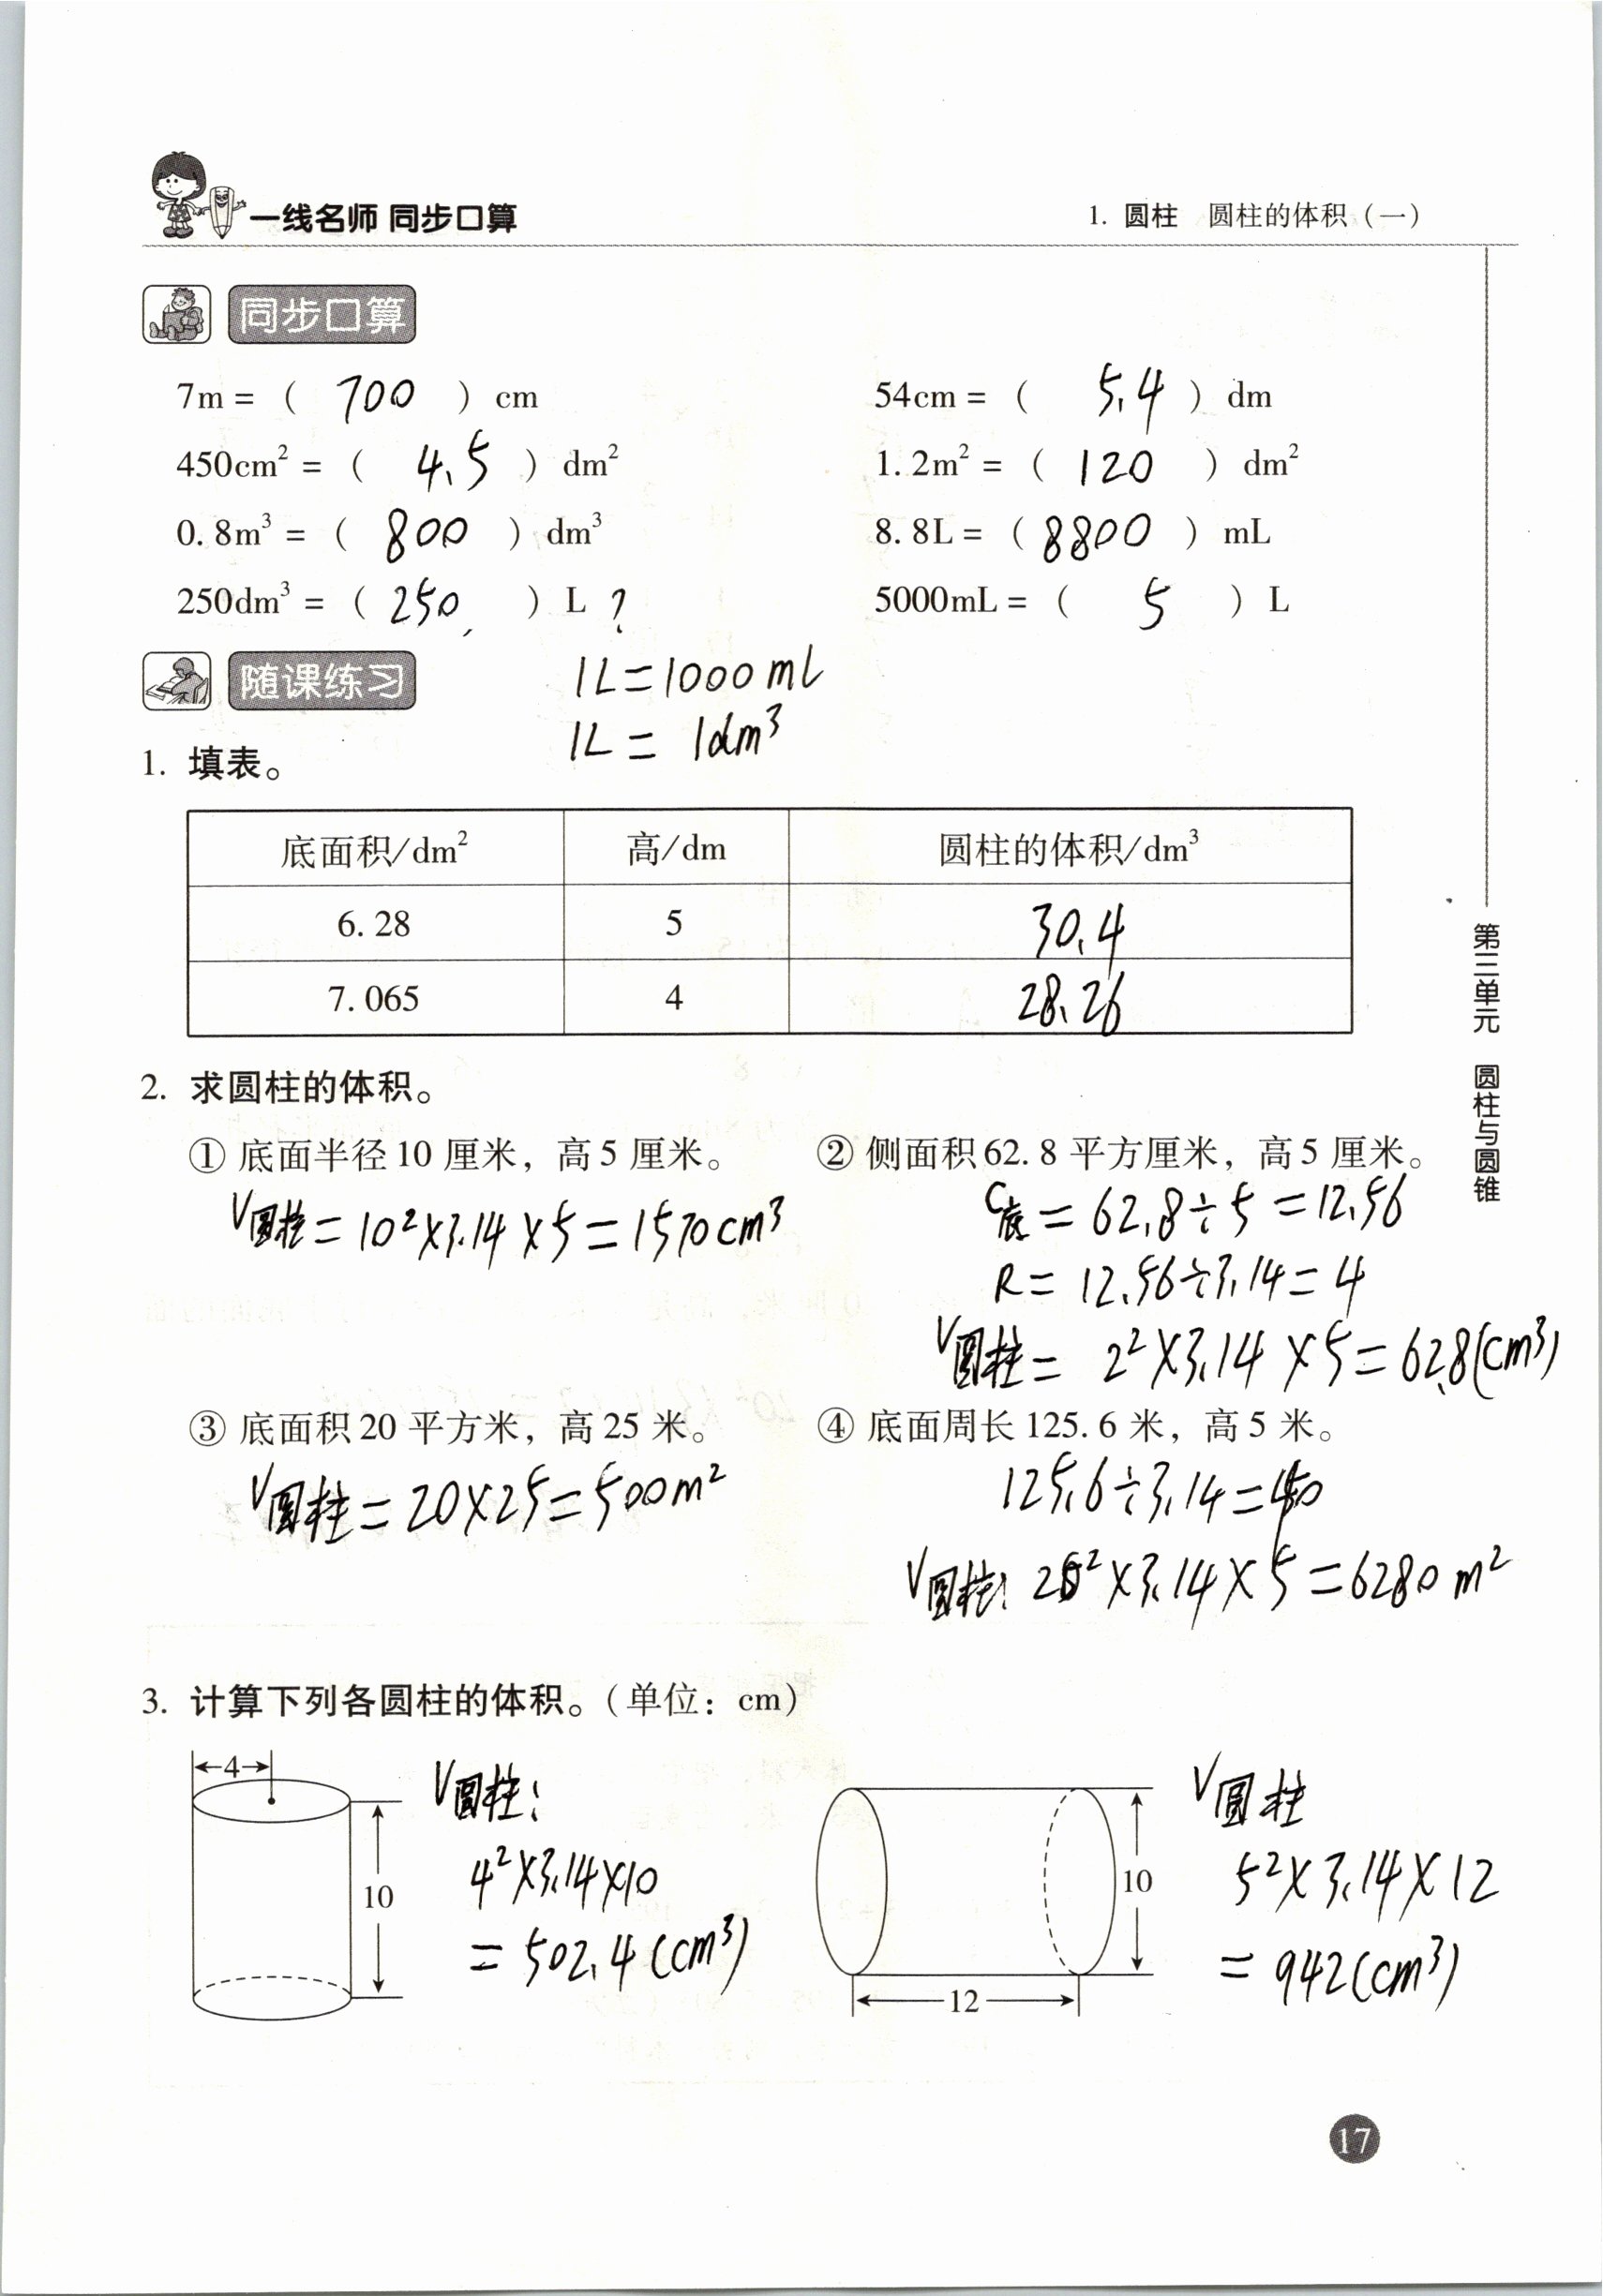 一线名师 同步口算
1. 圆柱 圆柱的体积（一）
同步口算
7m = （ 700 ） cm
54cm = （ 5.4 ） dm
450cm² = （ 4.5 ） dm²
1.2m² = （ 120 ） dm²
0.8m³ = （ 800 ） dm³
8.8L = （ 8800 ） mL
250dm³ = （ 250 ） L ?
5000mL = （ 5 ） L
随课练习
1L=1000ml
1L = 1dm³
1. 填表。
底面积/dm² 高/dm 圆柱的体积/dm³
6.28 5 30.4
7.065 4 28.26
2. 求圆柱的体积。
① 底面半径 10 厘米，高 5 厘米。
V圆柱 = 10²×3.14×5=1570cm³
② 侧面积 62.8 平方厘米，高 5 厘米。
C底 = 62.8÷5 =12.56
R = 12.56÷3.14=4
V圆柱 = 2²×3.14×5=62.8(cm³)
③ 底面积 20 平方米，高 25 米。
V圆柱 = 20×25=500m²
④ 底面周长 125.6 米，高 5 米。
125.6÷3.14=40
V圆柱: 20²×3.14×5=6280m²
3. 计算下列各圆柱的体积。（单位：cm）
4
10
V圆柱:
4²×3.14×10
= 502.4(cm³)
10
12
V圆柱
5²×3.14×12
= 942(cm³)
第三单元 圆柱与圆锥
17